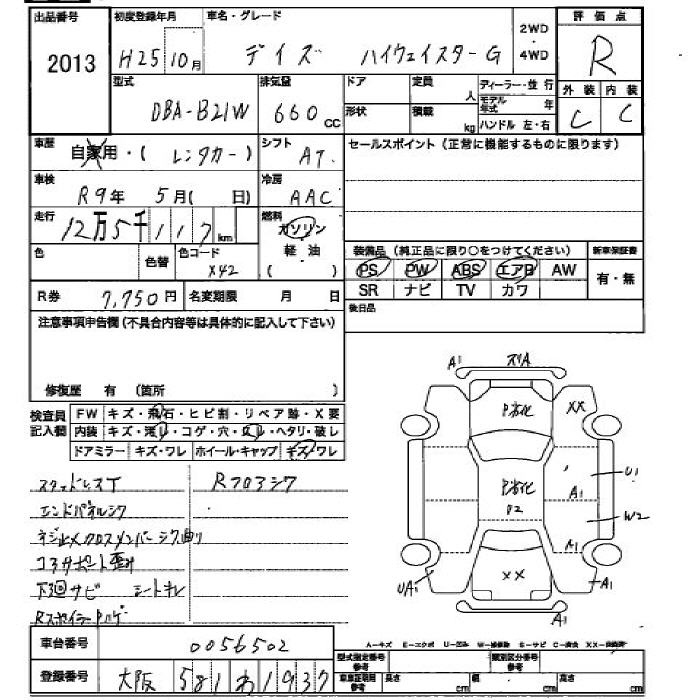 出品番号 2013
初度登録年月 H25 10月
車名・グレード デイズ ハイウェイスターG
2WD・4WD
評価点 R
外装 C 内装 C
型式 DBA-B21W
排気量 660 cc
ドア 定員 人 ディーラー・並行
形状 積載 kg モデル年式 年
ハンドル 左・右
車歴 自家用・( レンタカー )
シフト AT
セールスポイント(正常に機能するものに限ります)
車検 R9年 5月( 日)
冷房 AAC
走行 12万5千117 km
燃料 ガソリン 軽油 ( )
色 色替 色コード X42
装備品(純正品に限り○をつけてください) 新車保証書
PS PW ABS エアB AW 有・無
SR ナビ TV カワ
R券 7,750円 名変期限 月 日
後日品
注意事項申告欄(不具合内容等は具体的に記入して下さい)
修復歴 有 (箇所 )
検査員記入欄
FW キズ・飛石・ヒビ割・リペア跡・X要
内装 キズ・汚レ・コゲ・穴・スレ・ヘタリ・破レ
ドアミラー キズ・ワレ ホイール・キャップ キズ・ワレ
スタッドレスT Rフロアシワ
エンドパネルシワ
ネジ止メクロスメンバーシワ曲り
コアサポート歪み
下廻サビ シートキレ
RスポイラーPハゲ
A1 スリA
P劣化 XX
P劣化 U1
A1
P2 W2
A1
XX
UA1 A1
A1
車台番号 0056502
登録番号 大阪 581 わ 1937
A-キズ E-エクボ U-凹み S-サビ C-腐食
型式指定番号 参考 類別区分番号 参考
車庫証明用 参考 長さ cm 幅 cm 高さ cm